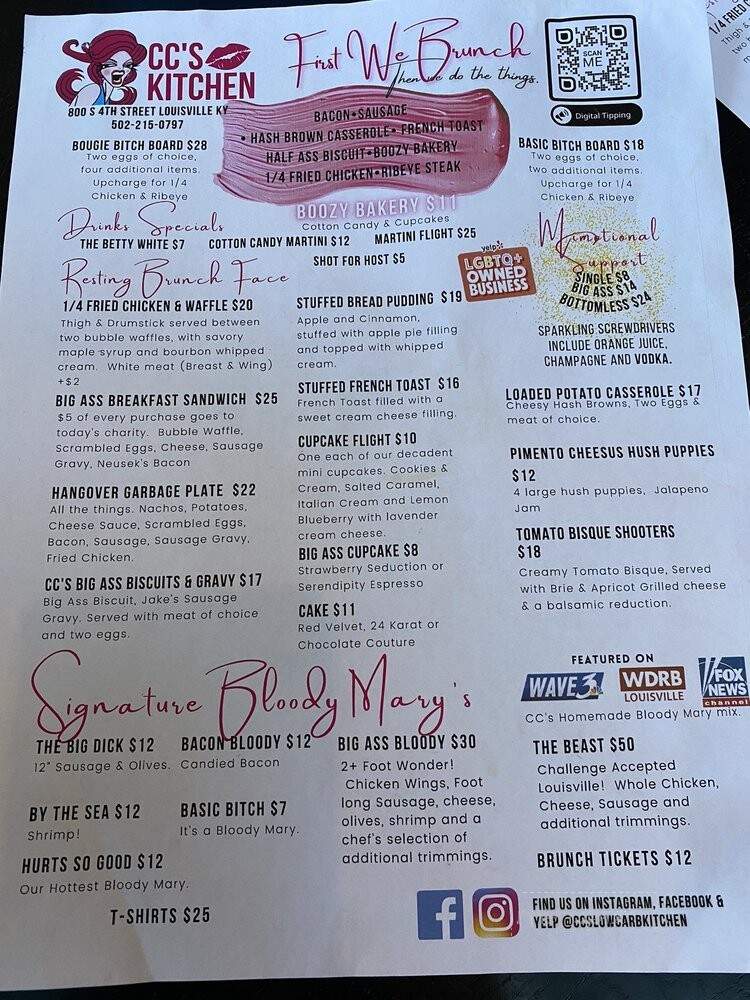 CC'S
KITCHEN
800 S 4TH STREET LOUISVILLE KY
502-215-0797
First We Brunch
Then we do the things.
SCAN
ME
Digital Tipping
BACON•SAUSAGE
• HASH BROWN CASSEROLE• FRENCH TOAST
HALF ASS BISCUIT•BOOZY BAKERY
1/4 FRIED CHICKEN•RIBEYE STEAK
BOUGIE BITCH BOARD $28
Two eggs of choice,
four additional items.
Upcharge for 1/4
Chicken & Ribeye
BASIC BITCH BOARD $18
Two eggs of choice,
two additional items.
Upcharge for 1/4
Chicken & Ribeye
BOOZY BAKERY $11
Cotton Candy & Cupcakes
Drinks Specials
THE BETTY WHITE $7 COTTON CANDY MARTINI $12 MARTINI FLIGHT $25
SHOT FOR HOST $5
yelp
LGBTQ+
OWNED
BUSINESS
Mimotional
Support
SINGLE $8
BIG ASS $14
BOTTOMLESS $24
SPARKLING SCREWDRIVERS
INCLUDE ORANGE JUICE,
CHAMPAGNE AND VODKA.
Resting Brunch Face
1/4 FRIED CHICKEN & WAFFLE $20
Thigh & Drumstick served between
two bubble waffles, with savory
maple syrup and bourbon whipped
cream. White meat (Breast & Wing)
+$2
BIG ASS BREAKFAST SANDWICH $25
$5 of every purchase goes to
today's charity. Bubble Waffle,
Scrambled Eggs, Cheese, Sausage
Gravy, Neusek's Bacon
HANGOVER GARBAGE PLATE $22
All the things. Nachos, Potatoes,
Cheese Sauce, Scrambled Eggs,
Bacon, Sausage, Sausage Gravy,
Fried Chicken.
CC'S BIG ASS BISCUITS & GRAVY $17
Big Ass Biscuit, Jake's Sausage
Gravy. Served with meat of choice
and two eggs.
STUFFED BREAD PUDDING $19
Apple and Cinnamon,
stuffed with apple pie filling
and topped with whipped
cream.
STUFFED FRENCH TOAST $16
French Toast filled with a
sweet cream cheese filling.
CUPCAKE FLIGHT $10
One each of our decadent
mini cupcakes. Cookies &
Cream, Salted Caramel,
Italian Cream and Lemon
Blueberry with lavender
cream cheese.
BIG ASS CUPCAKE $8
Strawberry Seduction or
Serendipity Espresso
CAKE $11
Red Velvet, 24 Karat or
Chocolate Couture
LOADED POTATO CASSEROLE $17
Cheesy Hash Browns, Two Eggs &
meat of choice.
PIMENTO CHEESUS HUSH PUPPIES
$12
4 large hush puppies, Jalapeno
Jam
TOMATO BISQUE SHOOTERS
$18
Creamy Tomato Bisque, Served
with Brie & Apricot Grilled cheese
& a balsamic reduction.
FEATURED ON
WAVE 3
WDRB
LOUISVILLE
FOX
NEWS
channel
CC's Homemade Bloody Mary mix.
Signature Bloody Mary's
THE BIG DICK $12
12" Sausage & Olives.
BACON BLOODY $12
Candied Bacon
BY THE SEA $12
Shrimp!
BASIC BITCH $7
It's a Bloody Mary.
HURTS SO GOOD $12
Our Hottest Bloody Mary.
T-SHIRTS $25
BIG ASS BLOODY $30
2+ Foot Wonder!
Chicken Wings, Foot
long Sausage, cheese,
olives, shrimp and a
chef's selection of
additional trimmings.
THE BEAST $50
Challenge Accepted
Louisville! Whole Chicken,
Cheese, Sausage and
additional trimmings.
BRUNCH TICKETS $12
FIND US ON INSTAGRAM, FACEBOOK &
YELP @CCSLOWCARBKITCHEN